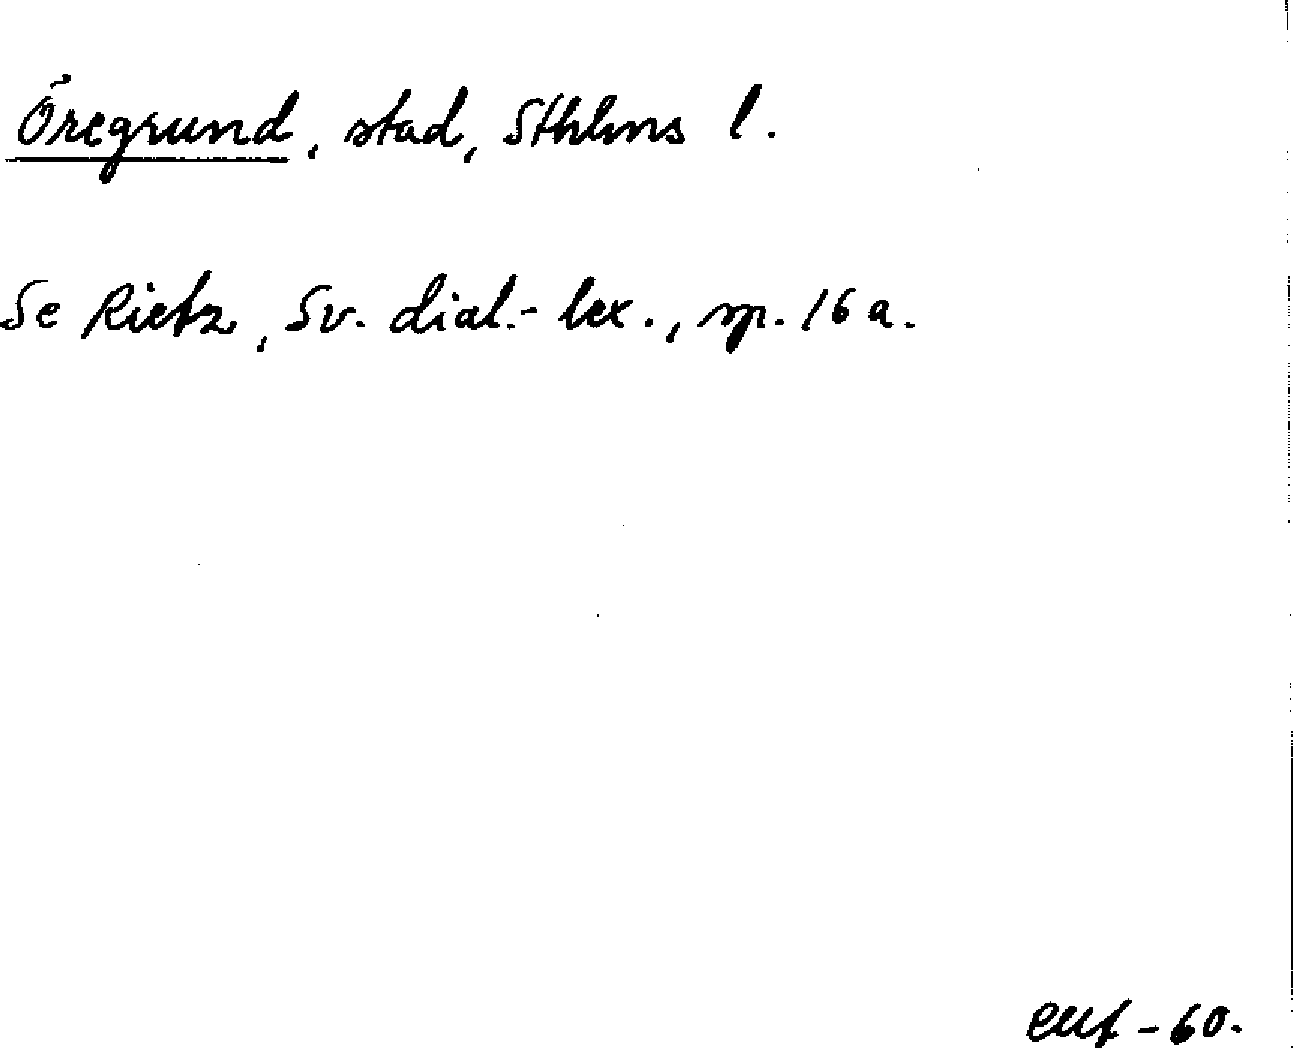 Öregrund, stad, Sthlms l.
Se Rietz, Sv. dial.-lex., sp. 16 a.
-60.